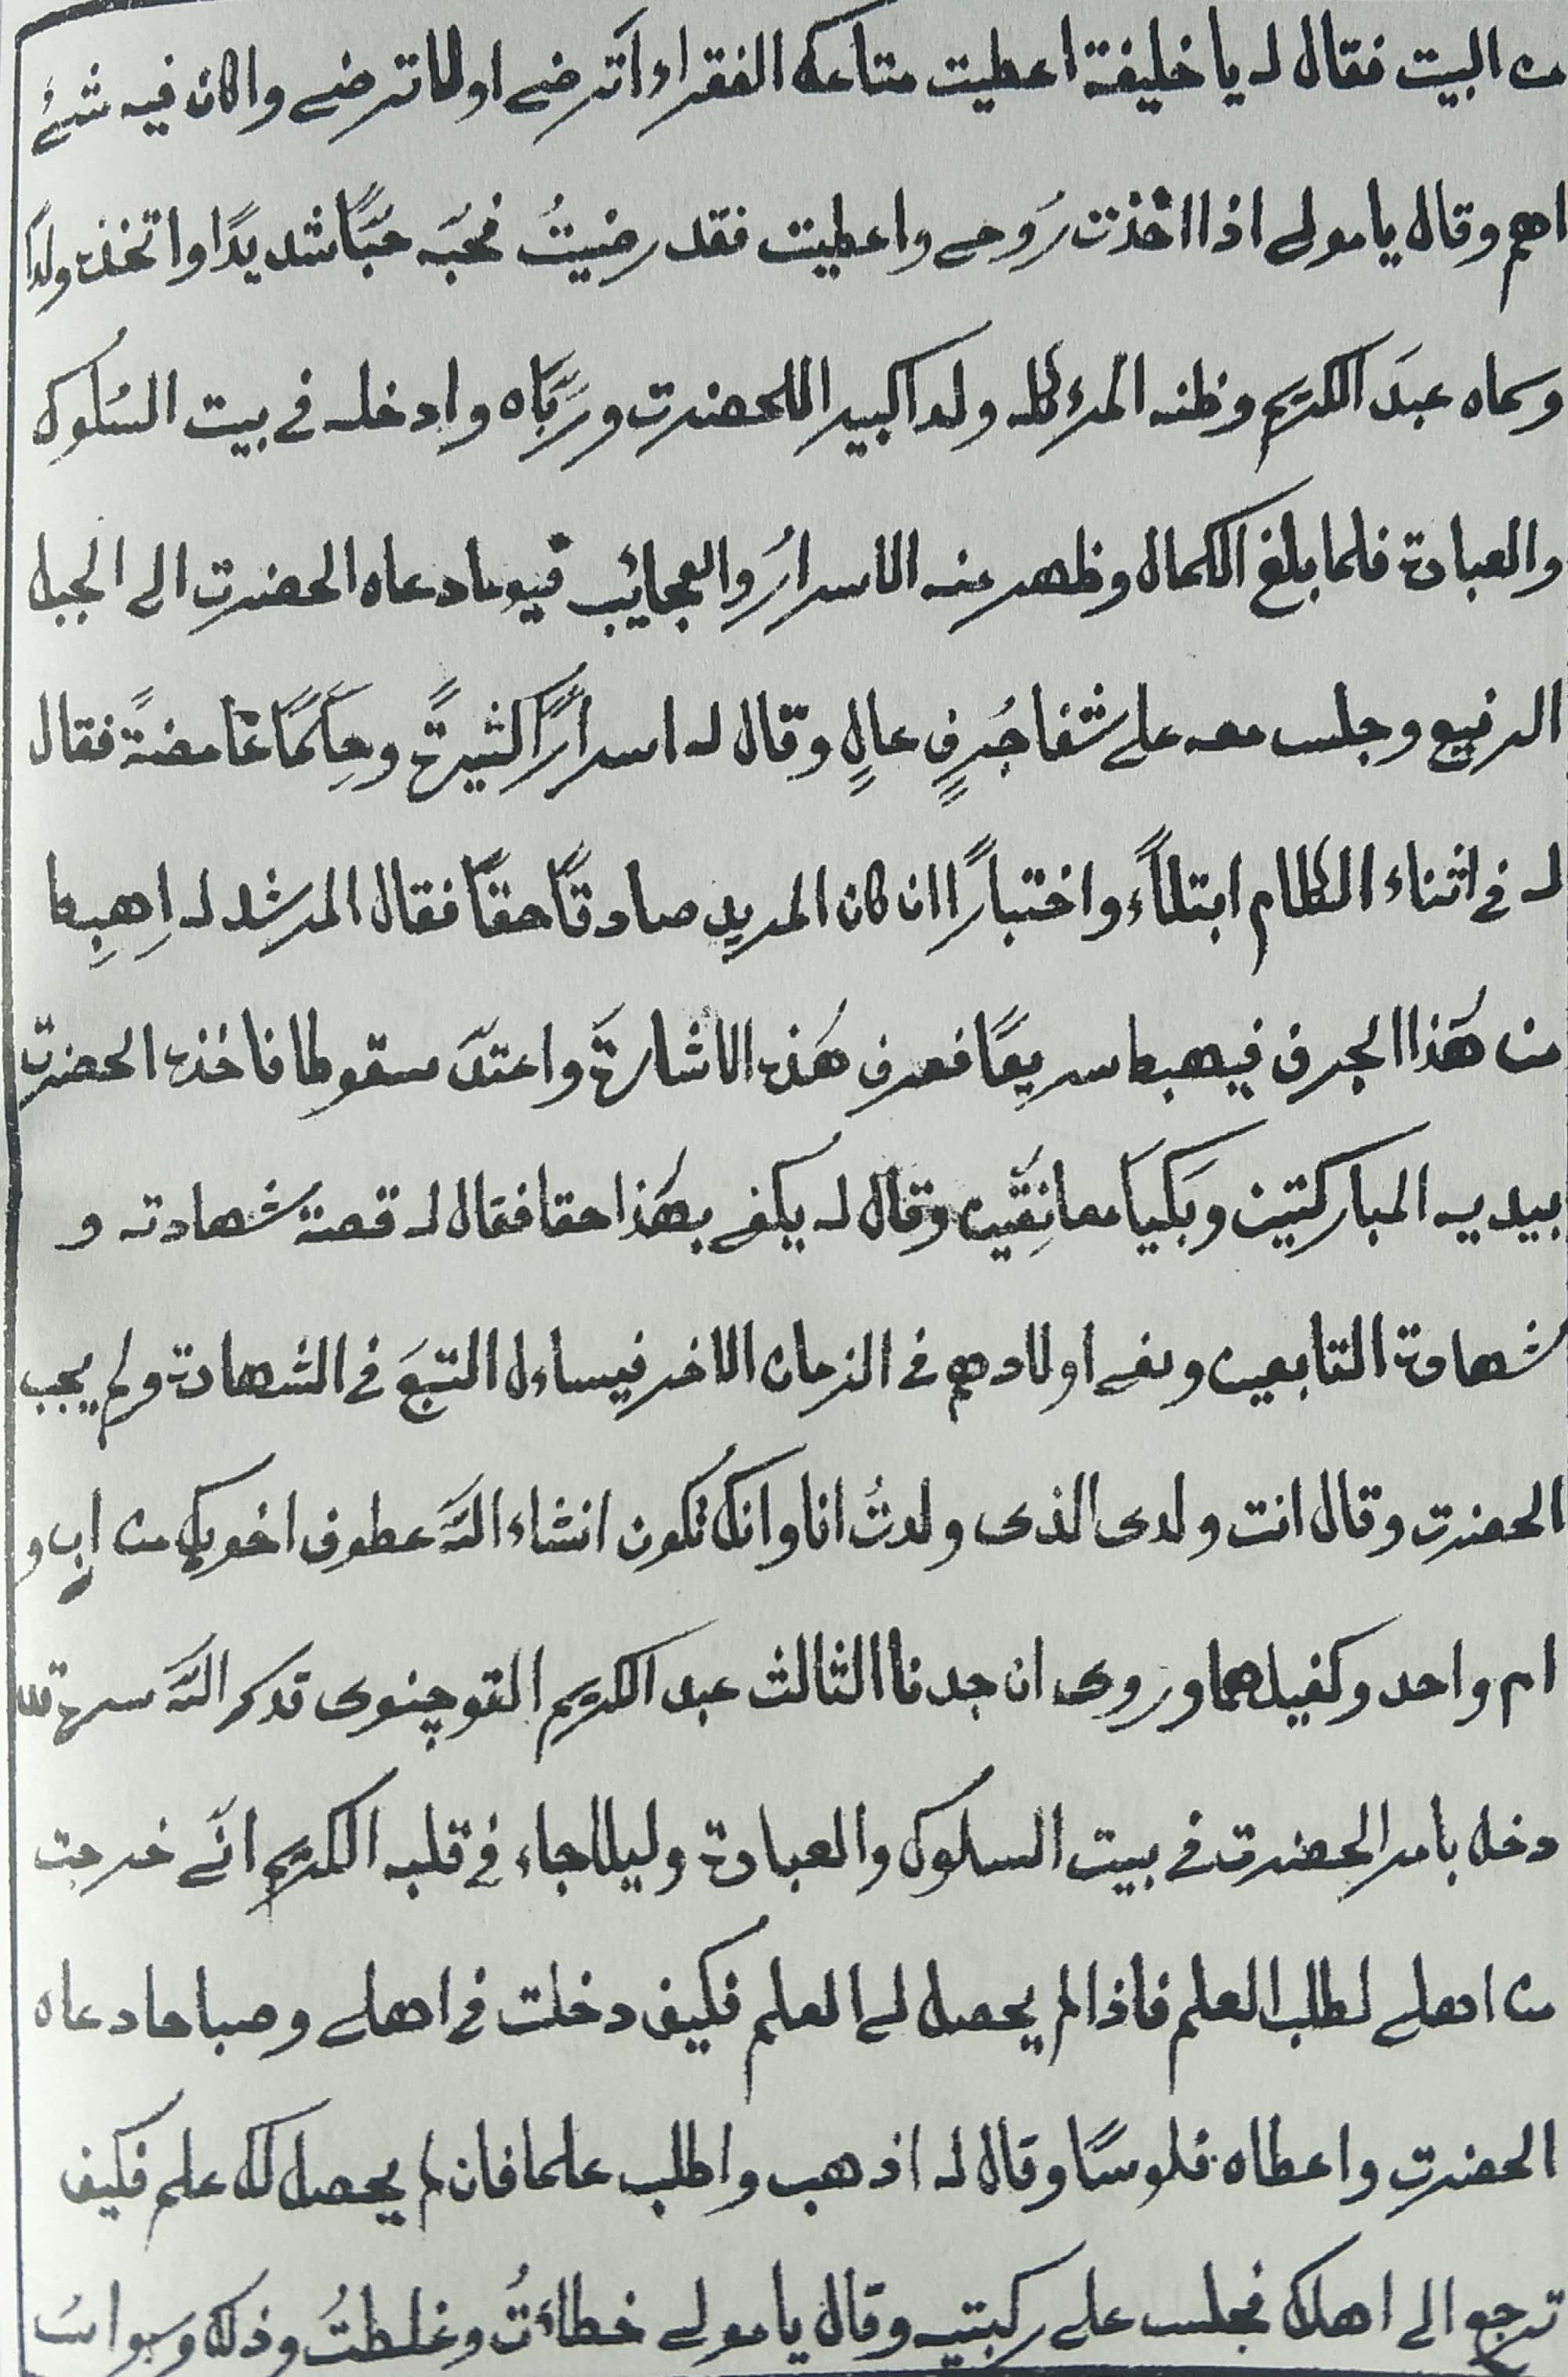 من البيت فقال له يا خليفة اعطيت متاعك الفقراء أترضى او لا ترضى واكان فيه شئ
اهم وقال يا مولى اذا اخذت رَوحى واعطيت فقد رضيتُ فحبّه حبًّا شديدًا واتخذه ولدًا
وسماه عبدَ الكريم وظنه المرء كله ولدا كبيرا للحضرت وربَّاه وادخله فى بيت السُلوك
والعبادة فلما بلغ الكمال وظهر منه الاسرارُ والعجائب فيوما دعاه الحضرت الى الجبل
الرفيع وجلس معه على شفا جُرفٍ عالٍ وقال له اسرارًا كثيرةً وحِكَمًا غامضةً فقال
له فى اثناء الكلام ابتلاءً واختبارًا ان كان المريد صادقًا حقًا فقال المرشد له اِهبِط
من هٰذا الجرف فيهبط سريعًا فعرف هٰذه الاشارةَ واعتدّ سقوطا فاخذه الحضرت
بيديه المباركتين وبَكَيا معانِقَين وقال له يكفى بهٰذا حقا فقال له قصة شهادته و
شهادة التابعين ونفى اولادهم فى الزمان الاخر فيساءل التبَعَ فى الشهادة ولم يجب
الحضرت وقال انت ولدى الذى ولدتُ انا وانك تكون انشاء اللّه عطوف اخويك من ابٍ و
ام واحد وكفيلهما وروى ان جدنا الثالث عبد الكريم القوچنوى قدكر اللّه سره
دخل بامر الحضرت فى بيت السلوك والعبادة وليلا جاء فى قلبه الكريم انّى خرجت
من اهلى لطلب العلم فاذا لم يحصل لى العلم فكيف دخلت فى اهلى وصباحا دعاه
الحضرت واعطاه فلوسًا وقال له اذهب واطلب علما فان لم يحصل لك علم فكيف
ترجع الى اهلك فجلس على ركبتيه وقال يا مولى خطاءتُ وغلطتُ وذلك